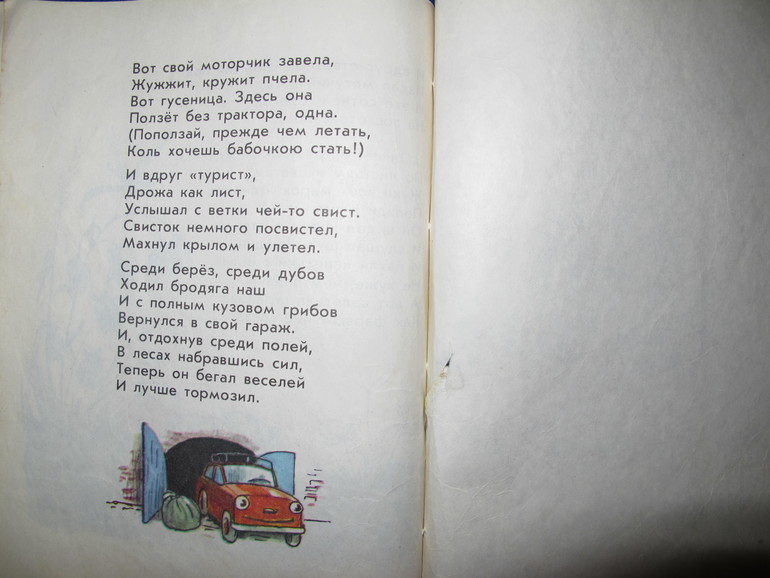 Вот свой моторчик завела,
Жужжит, кружит пчела.
Вот гусеница. Здесь она
Ползёт без трактора, одна.
(Поползай, прежде чем летать,
Коль хочешь бабочкою стать!)
И вдруг «турист»,
Дрожа как лист,
Услышал с ветки чей-то свист.
Свисток немного посвистел,
Махнул крылом и улетел.
Среди берёз, среди дубов
Ходил бродяга наш
И с полным кузовом грибов
Вернулся в свой гараж.
И, отдохнув среди полей,
В лесах набравшись сил,
Теперь он бегал веселей
И лучше тормозил.